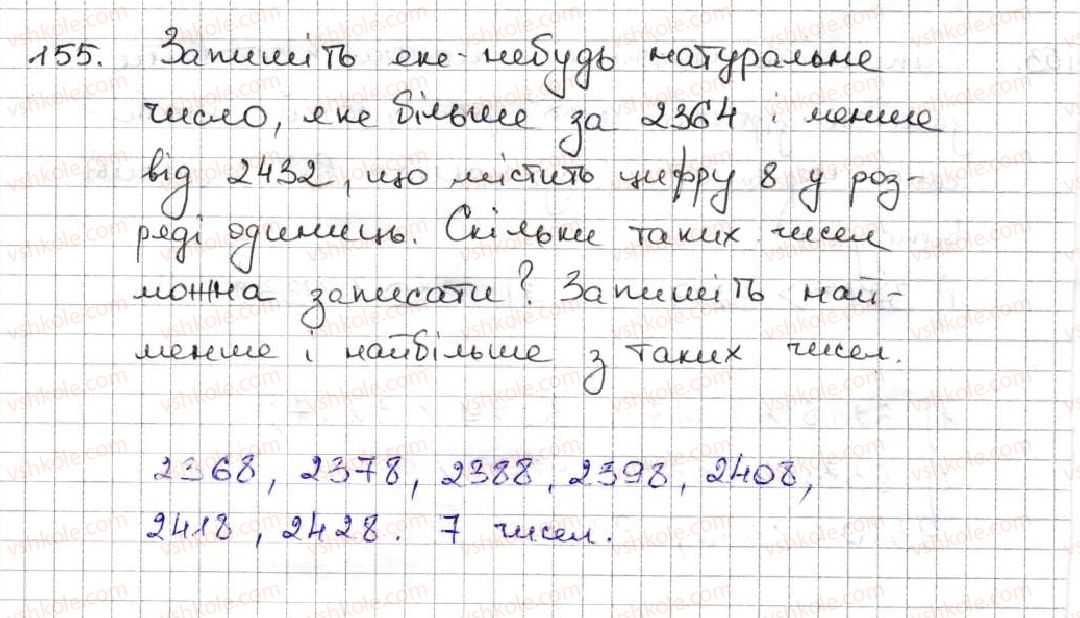 155. Запишіть яке-небудь натуральне
число, яке більше за 2364 і менше
від 2432, що містить цифру 8 у роз-
ряді одиниць. Скільки таких чисел
можна записати? Запишіть най-
менше і найбільше з таких чисел.
2368, 2378, 2388, 2398, 2408,
2418, 2428. 7 чисел.